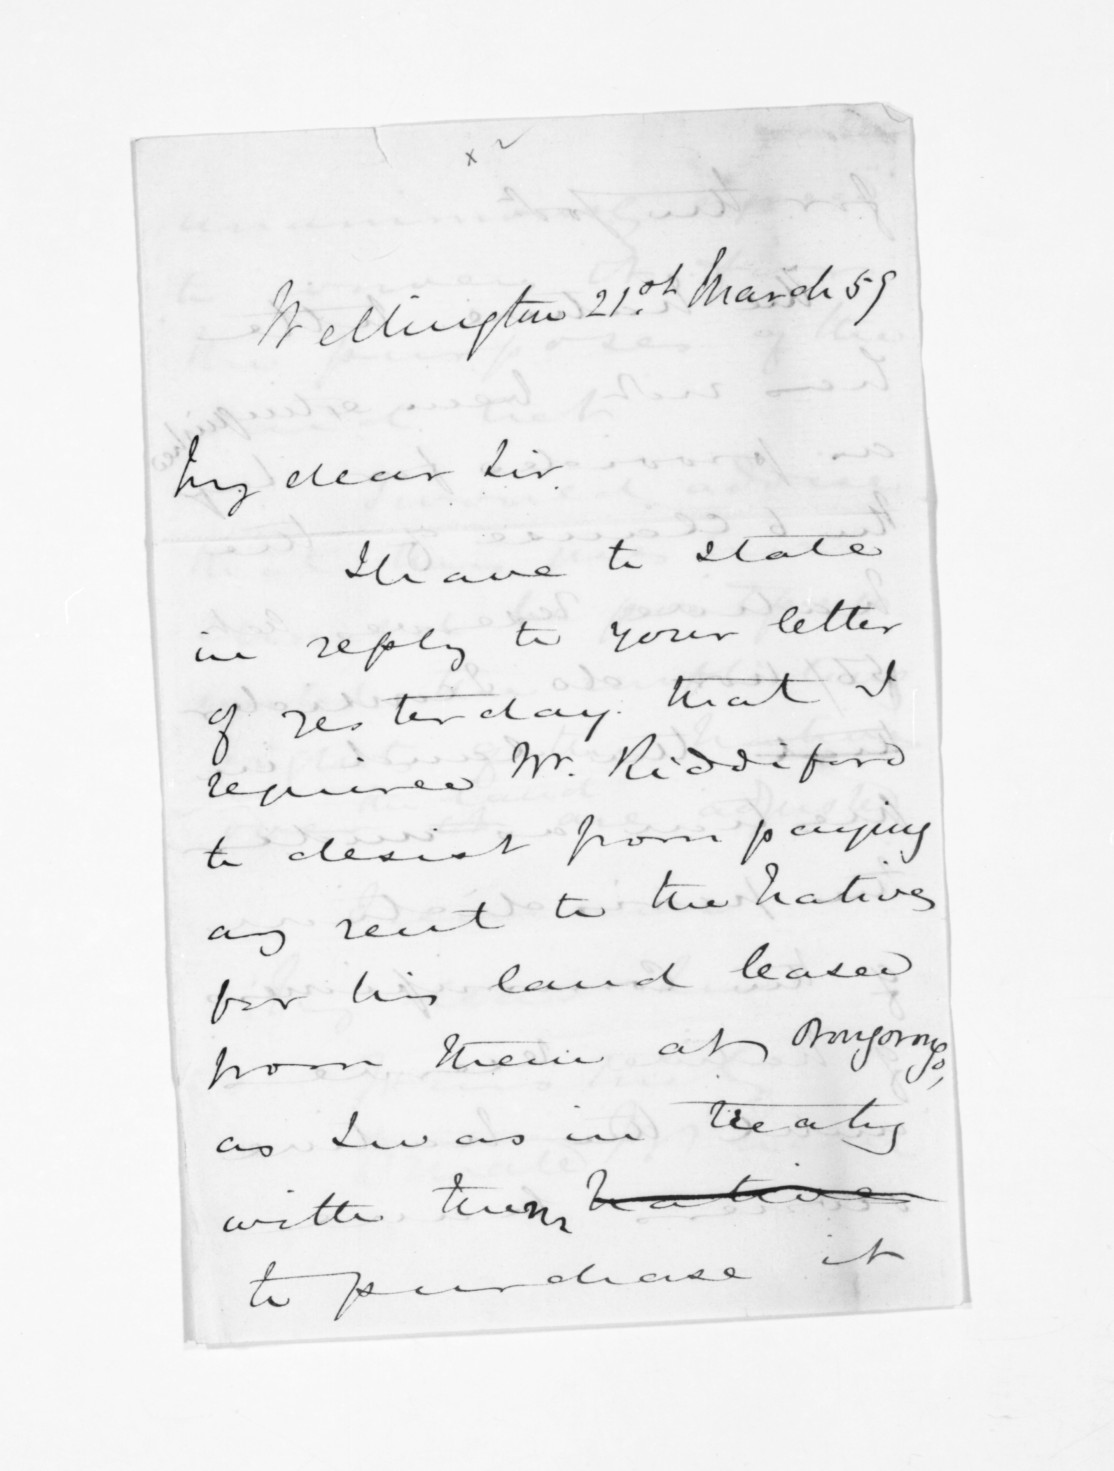 Wellington 21.st March 59
My dear Sir.
I have to state
in reply to your letter
of yesterday. that I
required Mr. Riddiford
to desist from paying
any rent to the Natives
for his land leased
from them at Orongorongo,
as I was in treaty
with them Natives
to purchase it